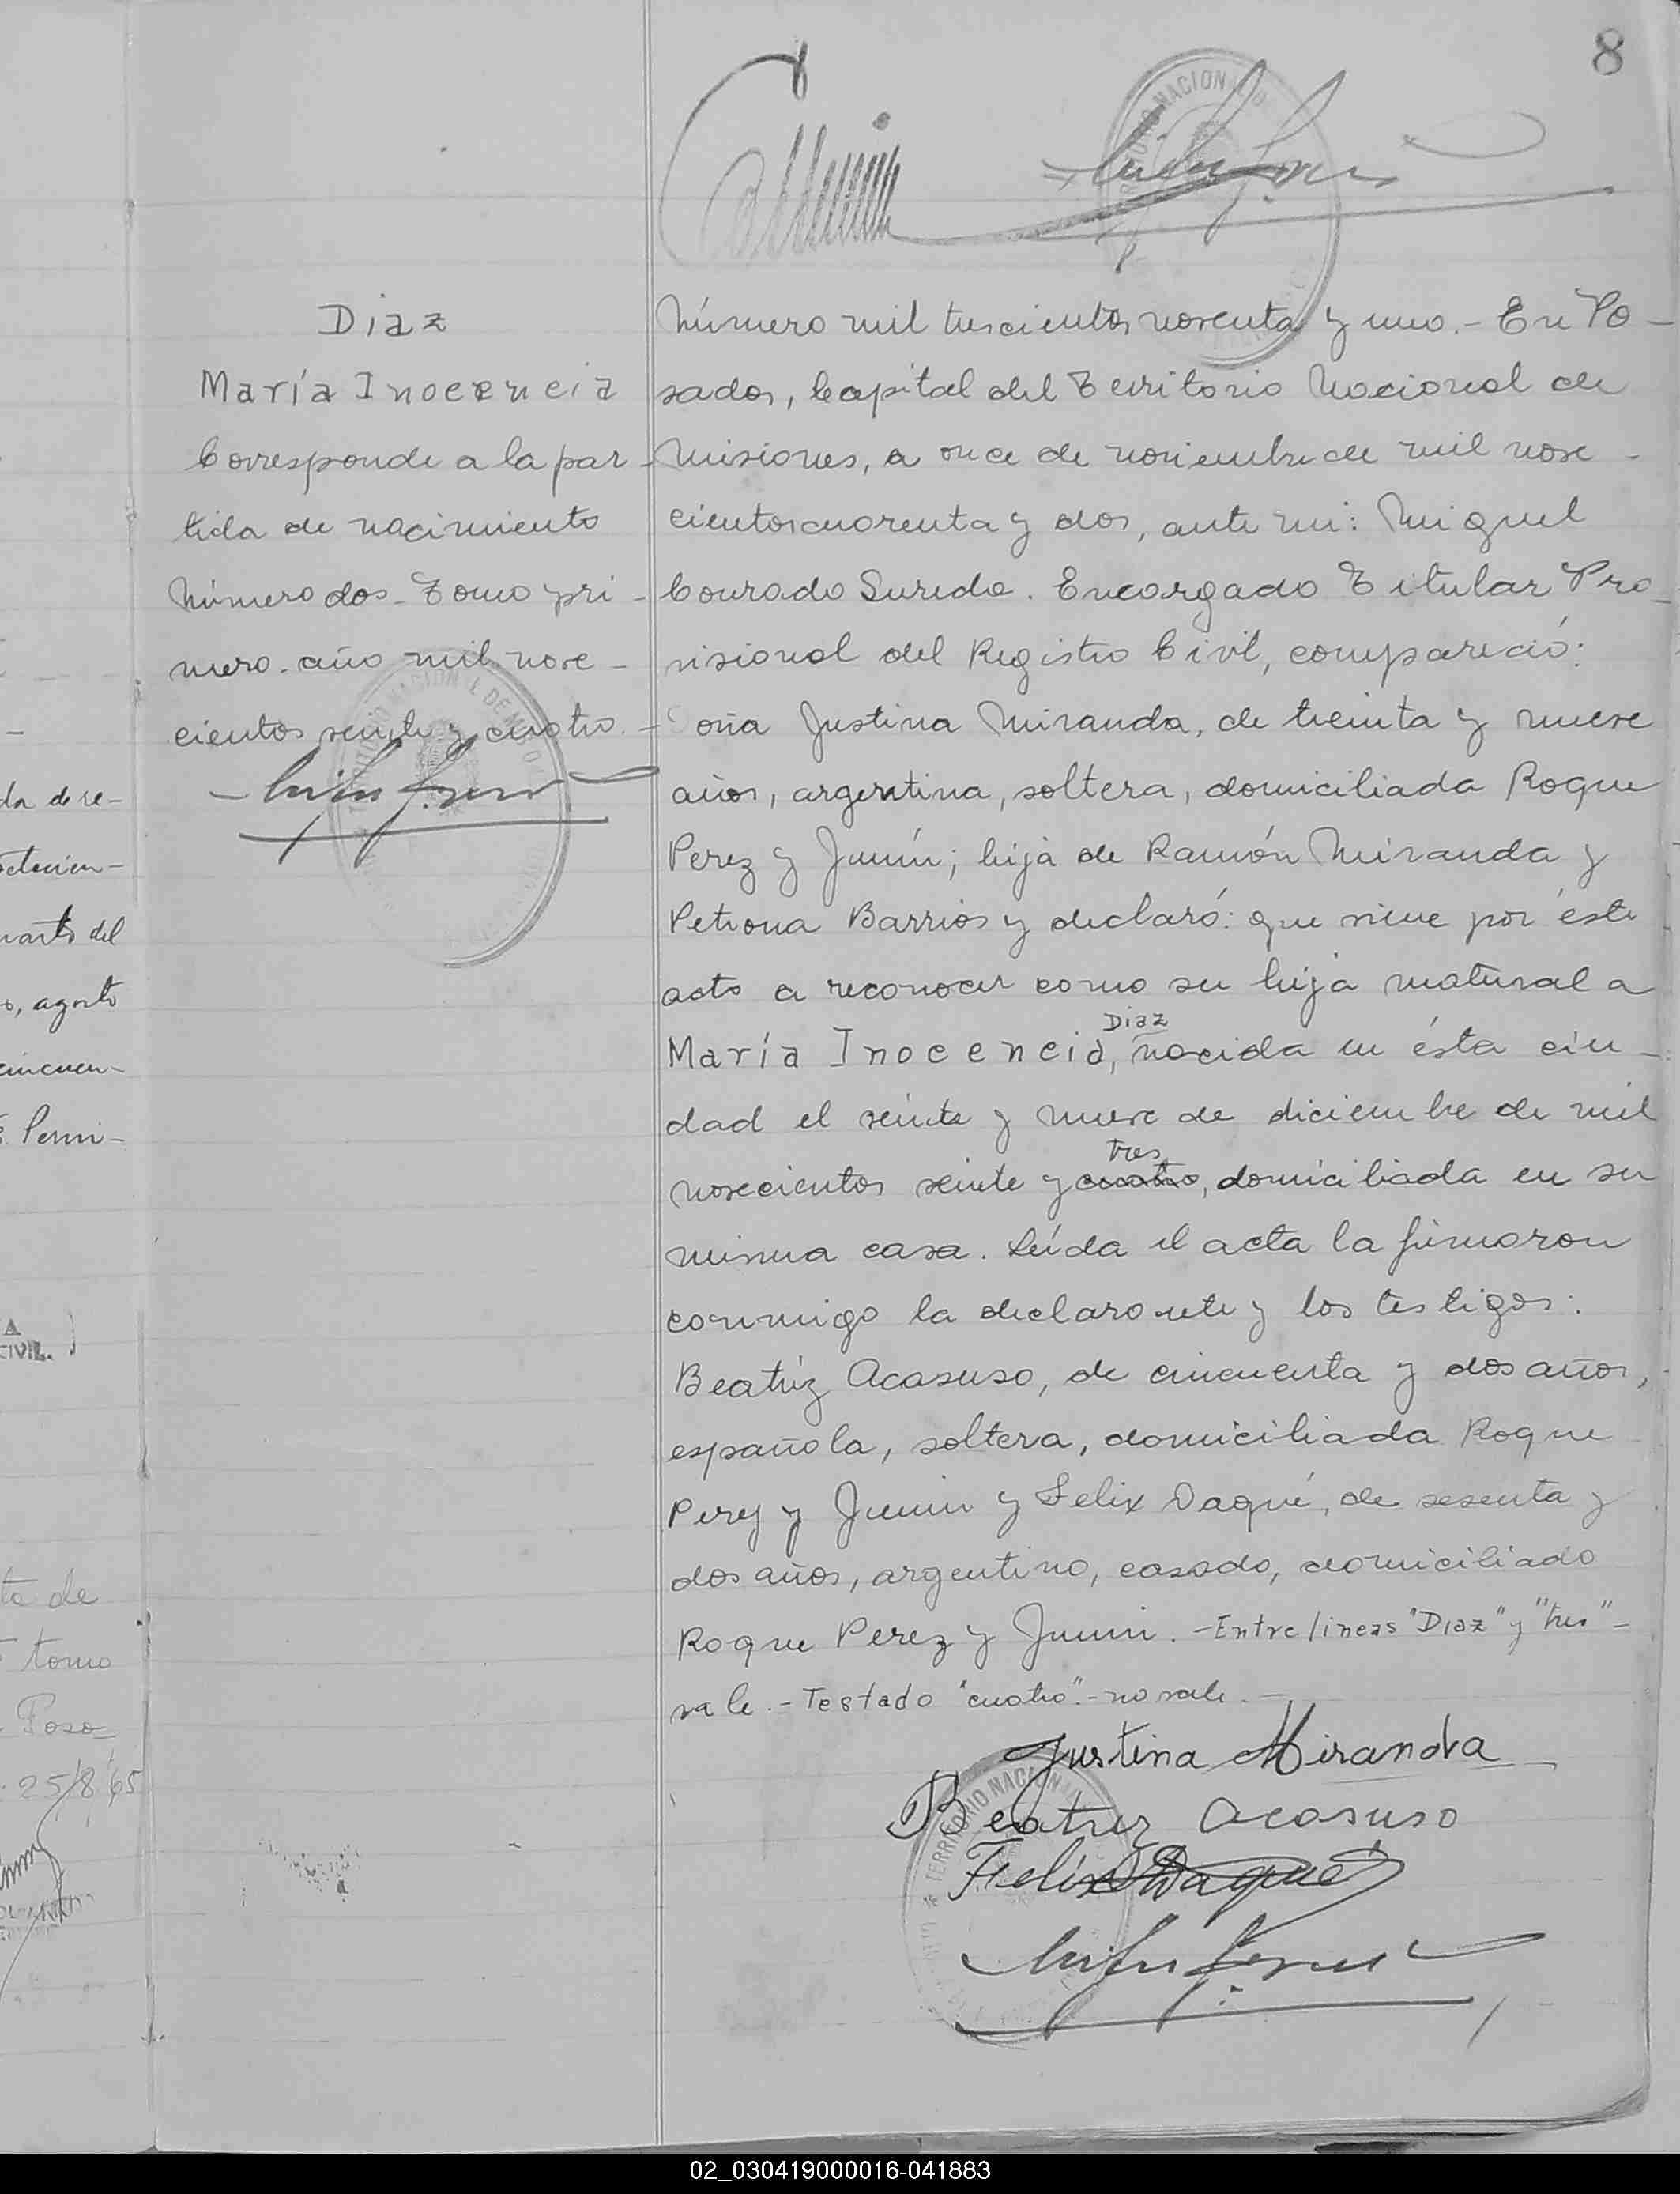 8
Diaz
María Inocencia
Corresponde a la par-
tida de nacimiento
Número dos - Tomo pri-
mero - año mil nove-
cientos veinte y cuatro.-
Número mil trescientos noventa y uno.- En Po-
sadas, Capital del Territorio Nacional de
Misiones, a once de noviembre de mil nove-
cientos cuarenta y dos, ante mi: Miguel
Conrado Sureda. Encargado Titular Pro-
visional del Registro Civil, compareció:
Doña Justina Miranda, de treinta y nueve
años, argentina, soltera, domiciliada Roque
Perez y Junín; hija de Ramón Miranda y
Petrona Barrios y declaró: que viene por éste
acto a reconocer como su hija natural a
Diaz
María Inocencia, nacida en ésta ciu-
dad el veinte y nueve de diciembre de mil
tres
novecientos veinte y cuatro, domiciliada en su
misma casa. Leída el acta la firmaron
conmigo la declarante y los testigos:
Beatríz Acasuso, de cincuenta y dos años,
española, soltera, domiciliada Roque
Perez y Junin y Felix Daqué, de sesenta y
dos años, argentino, casado, domiciliado
Roque Perez y Junin. - Entre lineas "Diaz" y "tres"-
vale.- Testado "cuatro".- no vale.-
Justina Miranda
Beatriz Acasuso
Felix Daqué
da de re-
del
o, agosto
cincuen-
A
CIVIL.
ta de
tomo
Posa
25/8/65
TERRITORIO NACIONAL DE MISIONES
TERRITORIO NACIONAL
02_030419000016-041883